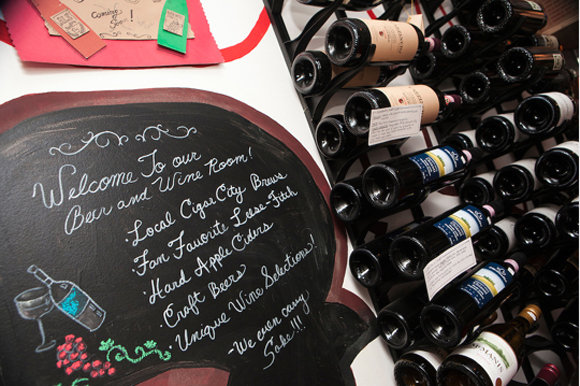 Coming
Soon!
Welcome To our
Beer and Wine Room!
·Local Cigar City Brews
·Fan Favorite Leese-Fitch
·Hard Apple Ciders
·Craft Beers
·Unique Wine Selections!
-We even carry
Sake!!!